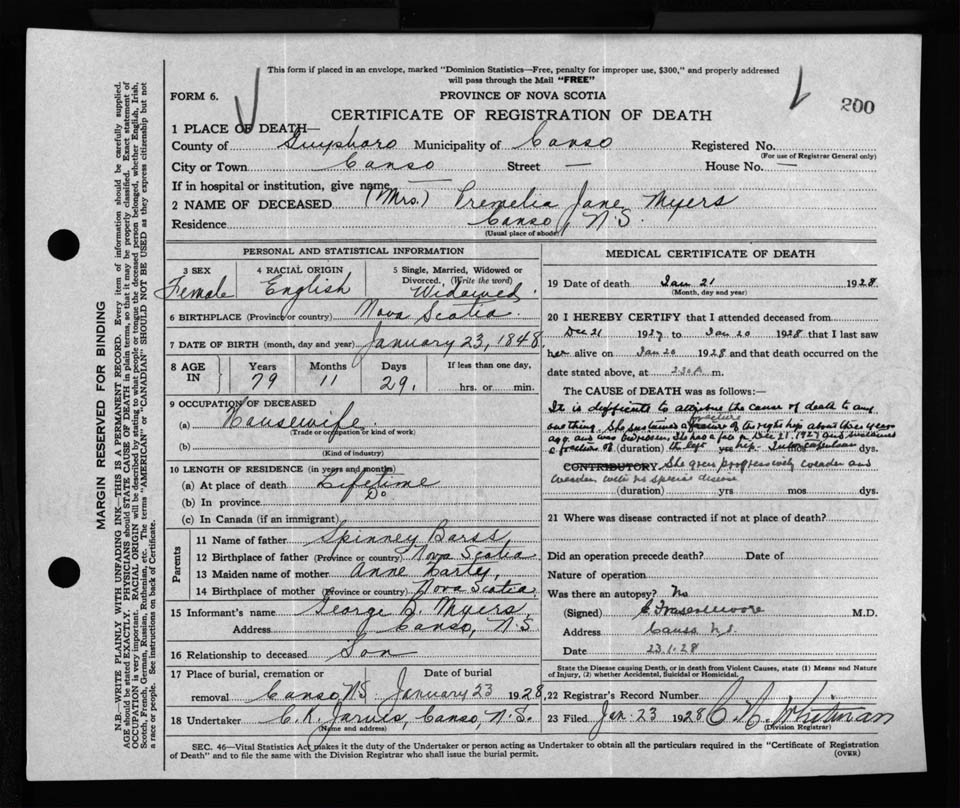 This form if placed in an envelope, marked "Dominion Statistics—Free, penalty for improper use, $300," and properly addressed
will pass through the Mail "FREE"
FORM 6.
PROVINCE OF NOVA SCOTIA
200
CERTIFICATE OF REGISTRATION OF DEATH
1 PLACE OF DEATH—
County of Guysboro Municipality of Canso Registered No.
(For use of Registrar General only)
City or Town Canso Street — House No. —
If in hospital or institution, give name —
2 NAME OF DECEASED (Mrs.) Premelia Jane Myers
Residence Canso, N.S.
(Usual place of abode)
PERSONAL AND STATISTICAL INFORMATION
3 SEX 4 RACIAL ORIGIN 5 Single, Married, Widowed or
Divorced. (Write the word)
Female English Widowed
6 BIRTHPLACE (Province or country) Nova Scotia
7 DATE OF BIRTH (month, day and year) January 23, 1848
8 AGE IN Years Months Days If less than one day,
79 11 29 hrs. or min.
9 OCCUPATION OF DECEASED
(a) Housewife
(Trade or occupation or kind of work)
(b)
(Kind of industry)
10 LENGTH OF RESIDENCE (in years and months)
(a) At place of death Lifetime
(b) In province Do
(c) In Canada (if an immigrant)
Parents
11 Name of father Spinney Barss
12 Birthplace of father (Province or country) Nova Scotia
13 Maiden name of mother Anne Harty
14 Birthplace of mother (Province or country) Nova Scotia
15 Informant's name George B. Myers
Address Canso, N.S
16 Relationship to deceased Son
17 Place of burial, cremation or Date of burial
removal Canso N.S. January 23 1928
18 Undertaker C. K. Jarvis, Canso, N.S.
(Name and address)
MEDICAL CERTIFICATE OF DEATH
19 Date of death Jan 21 1928
(Month, day and year)
20 I HEREBY CERTIFY that I attended deceased from
Dec 21 1927 to Jan 20 1928 that I last saw
her alive on Jan 20 1928 and that death occurred on
date stated above, at 2.30 A m.
The CAUSE of DEATH was as follows:—
It is difficult to attribute the cause of death to any
one thing. She sustained a fracture of the right hip about three years
ago and was bedridden. She had a fall on Dec 21, 1927 and sustained
a fracture of (duration) the left yrs hip mos dys.
CONTRIBUTORY She grew progressively weaker and
weaker with no special disease
(duration) yrs mos dys.
21 Where was disease contracted if not at place of death?
Did an operation precede death? Date of
Nature of operation
Was there an autopsy? No
(Signed) M.D.
Address Canso N.S.
Date 23.1.28
State the Disease causing Death, or in death from Violent Causes, state (1) Means and Nature
of Injury, (2) whether Accidental, Suicidal or Homicidal.
22 Registrar's Record Number
23 Filed Jan. 23 1928 C. C. Whitman
(Division Registrar)
SEC. 46—Vital Statistics Act makes it the duty of the Undertaker or person acting as Undertaker to obtain all the particulars required in the "Certificate of Registration
of Death" and to file the same with the Division Registrar who shall issue the burial permit.
(OVER)
MARGIN RESERVED FOR BINDING
N.B. WRITE PLAINLY WITH UNFADING INK—THIS IS A PERMANENT RECORD. Every item of information should be carefully supplied.
AGE should be stated EXACTLY. PHYSICIANS should STATE CAUSE OF DEATH in plain terms, so that it may be properly classified. Exact statement of
OCCUPATION is very important. RACIAL ORIGIN will be described by stating to what people or tongue the deceased person belonged, whether English, Irish,
Scotch, French, German, Russian, Ruthenian, etc. The terms "AMERICAN" or "CANADIAN" SHOULD NOT BE USED as they express citizenship but not
a race or people. See instructions on back of Certificate.